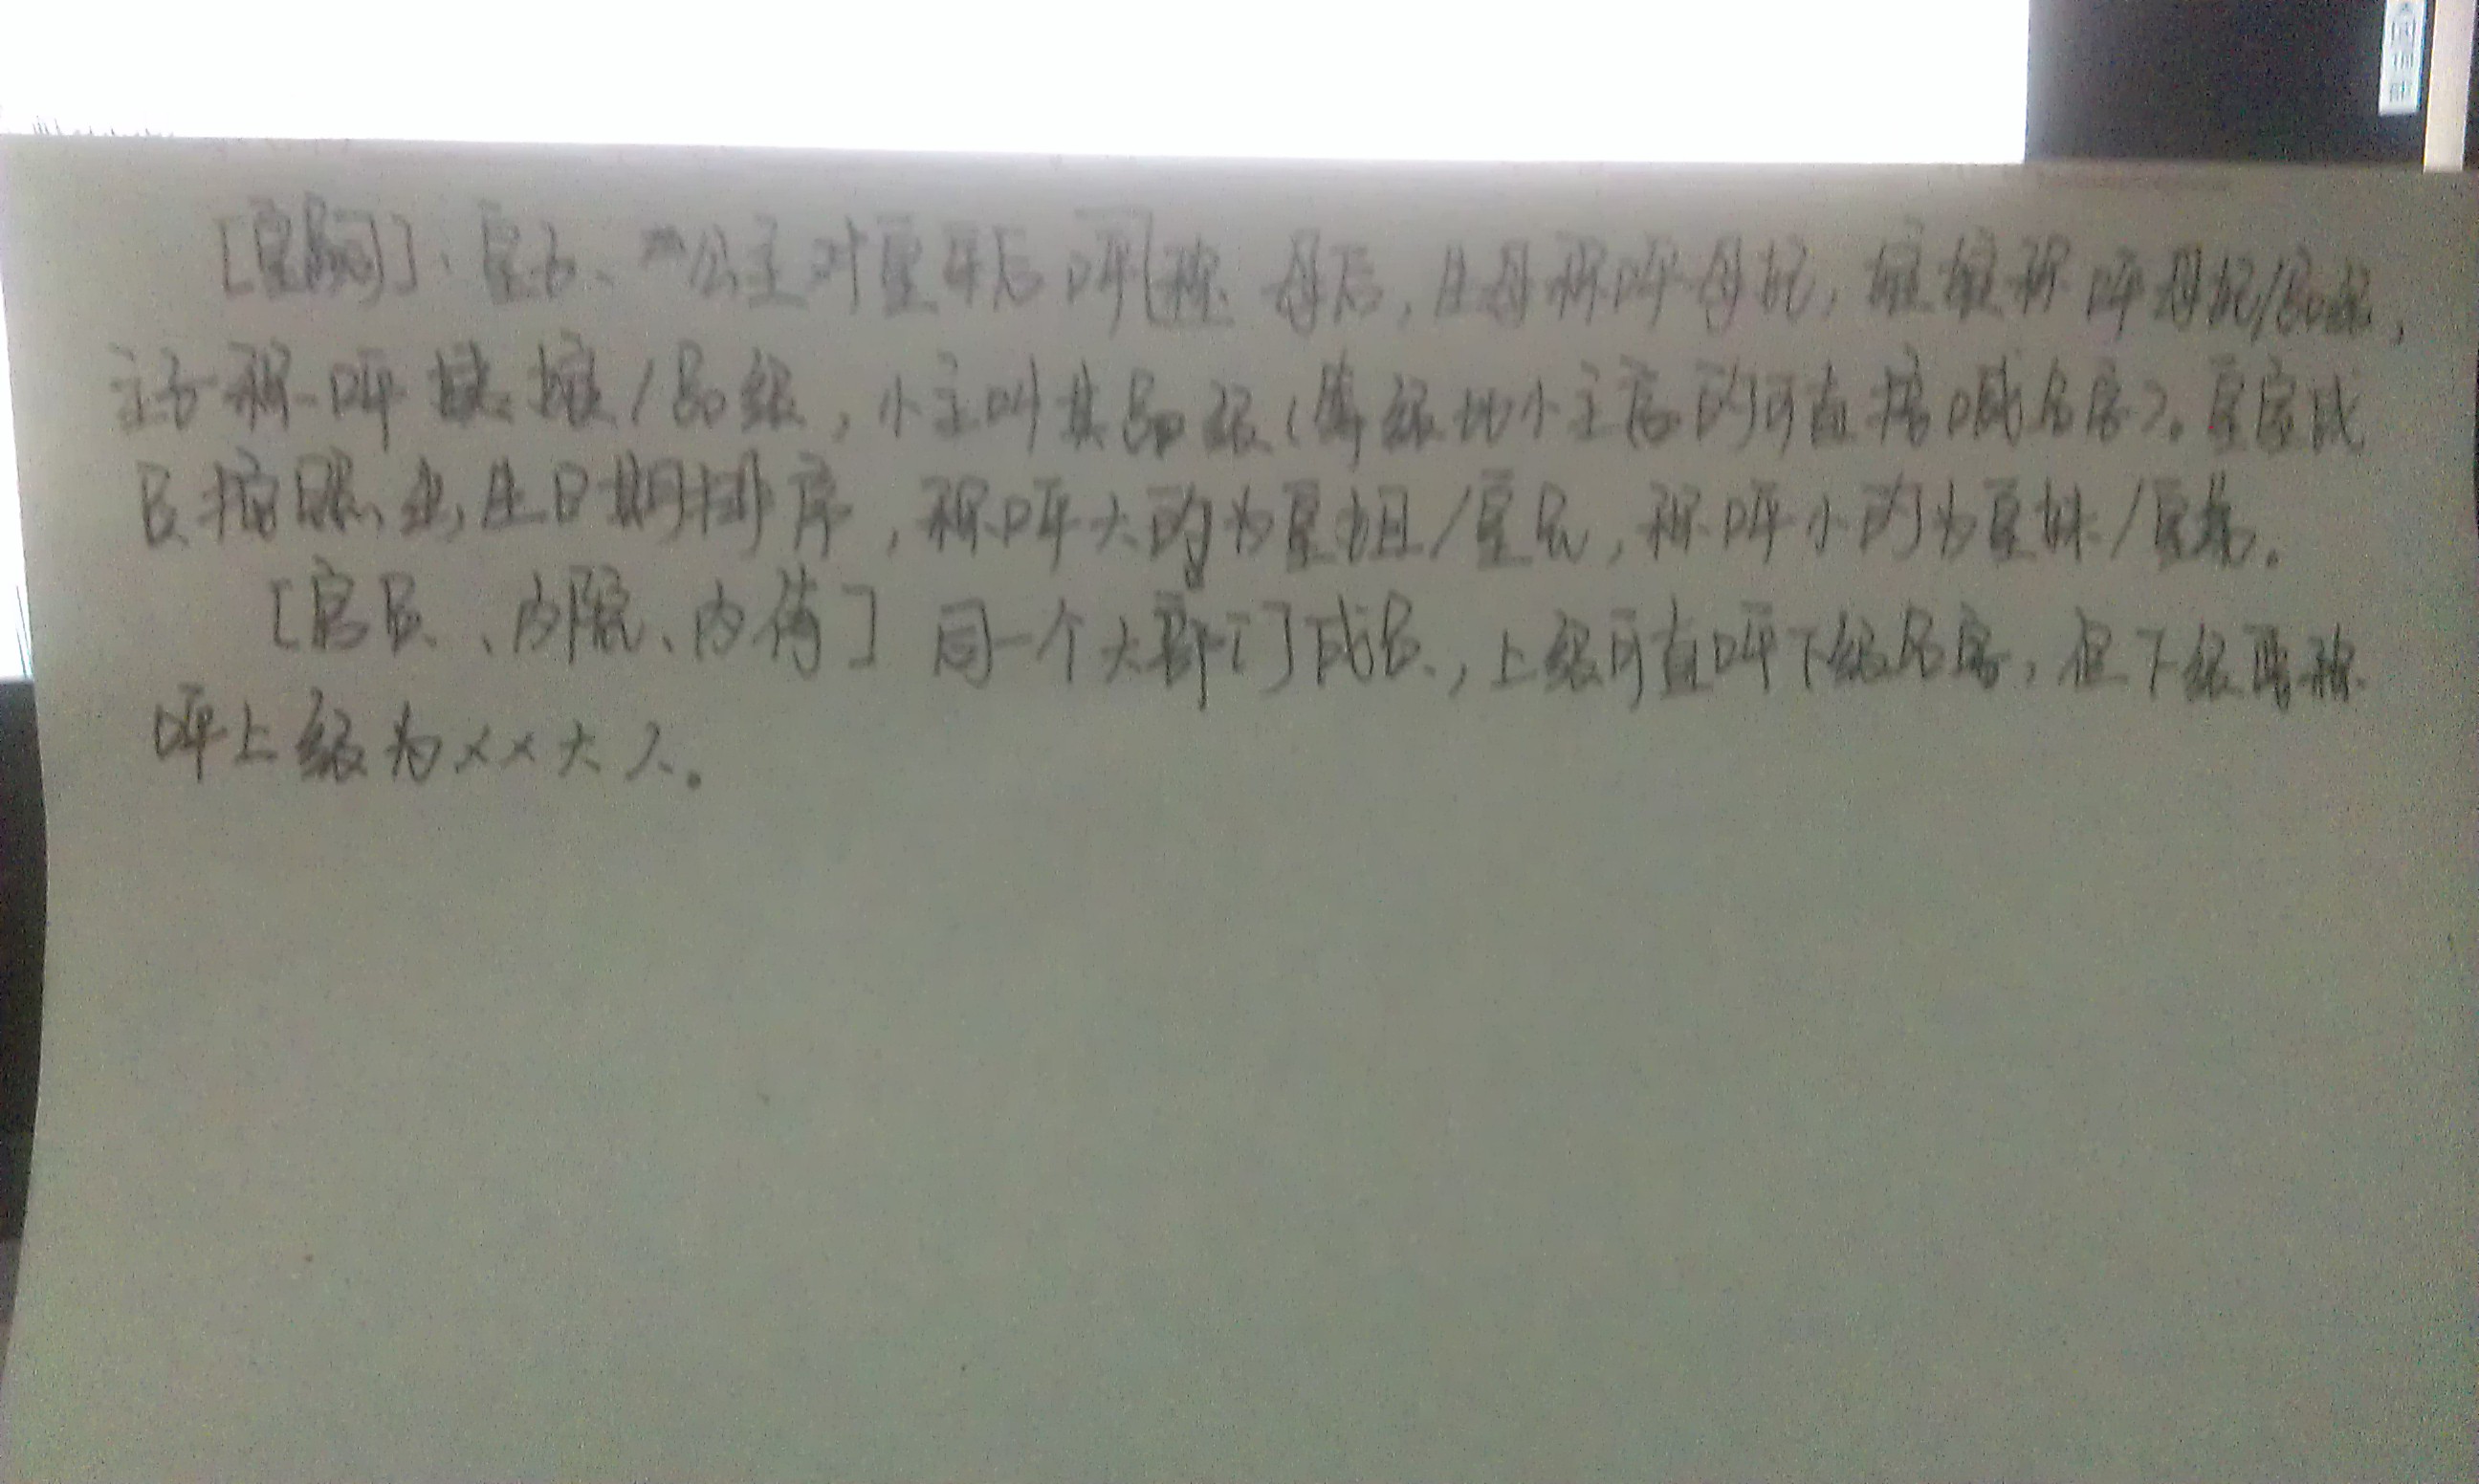 [皇嗣]：皇子、公主对皇后称呼母后，生母称呼母妃，娘娘称呼母妃/品级，
主子称呼娘娘/品级，小主叫其品级（等级比小主高的可直接喊名字）。皇室成
员按照出生日期排序，称呼大的为皇姐/皇兄，称呼小的为皇妹/皇弟。
[官员、内院、内侍] 同一个大部门成员，上级可直呼下级名字，但下级要称
呼上级为××大人。